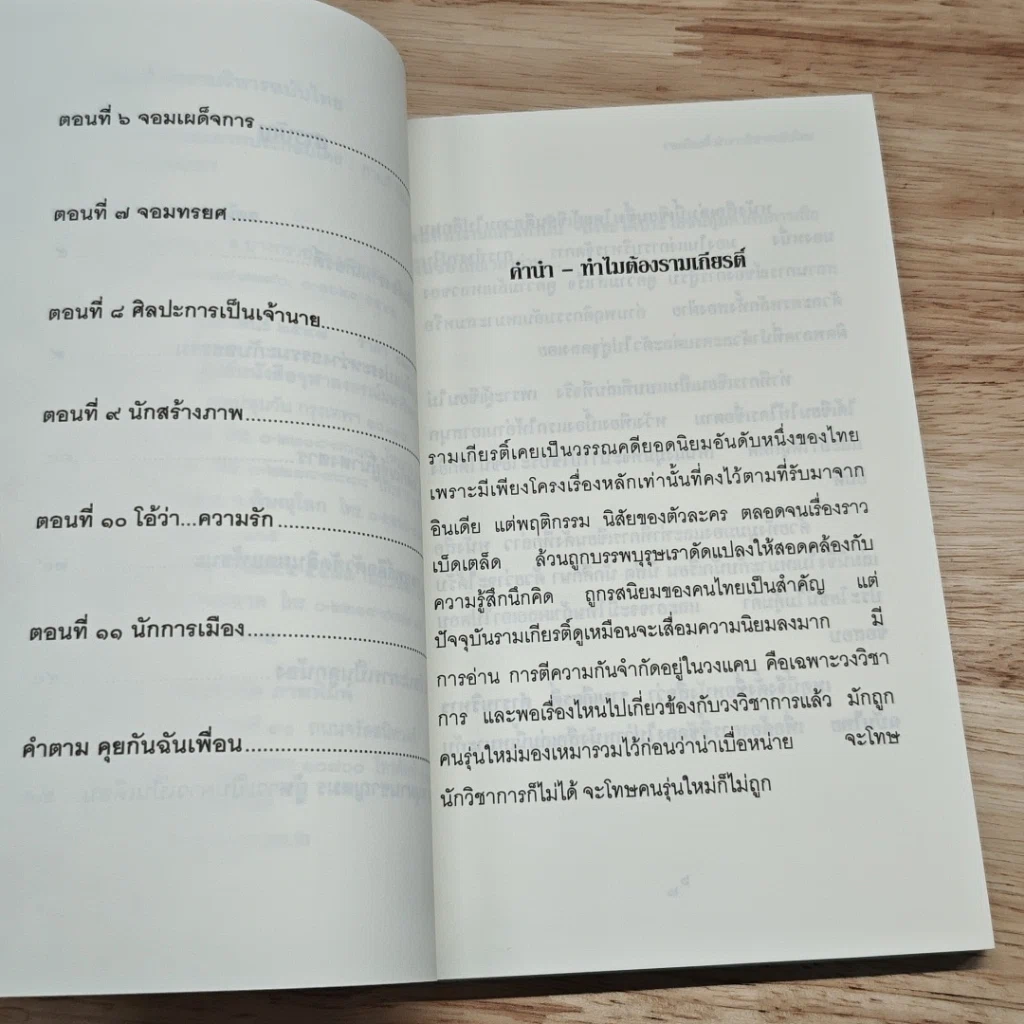 ตอนที่ ๖ จอมเผด็จการ
ตอนที่ ๗ จอมทรยศ
ตอนที่ ๘ ศิลปะการเป็นเจ้านาย
ตอนที่ ๙ นักสร้างภาพ
ตอนที่ ๑๐ โอ้ว่า...ความรัก
ตอนที่ ๑๑ นักการเมือง
คำตาม คุยกันฉันเพื่อน
คำนำ – ทำไมต้องรามเกียรติ์
รามเกียรติ์เคยเป็นวรรณคดียอดนิยมอันดับหนึ่งของไทย
เพราะมีเพียงโครงเรื่องหลักเท่านั้นที่คงไว้ตามที่รับมาจาก
อินเดีย แต่พฤติกรรม นิสัยของตัวละคร ตลอดจนเรื่องราว
เบ็ดเตล็ด ล้วนถูกบรรพบุรุษเราดัดแปลงให้สอดคล้องกับ
ความรู้สึกนึกคิด ถูกรสนิยมของคนไทยเป็นสำคัญ แต่
ปัจจุบันรามเกียรติ์ดูเหมือนจะเสื่อมความนิยมลงมาก มี
การอ่าน การตีความกันจำกัดอยู่ในวงแคบ คือเฉพาะวงวิชา
การ และพอเรื่องไหนไปเกี่ยวข้องกับวงวิชาการแล้ว มักถูก
คนรุ่นใหม่มองเหมารวมไว้ก่อนว่าน่าเบื่อหน่าย จะโทษ
นักวิชาการก็ไม่ได้ จะโทษคนรุ่นใหม่ก็ไม่ถูก